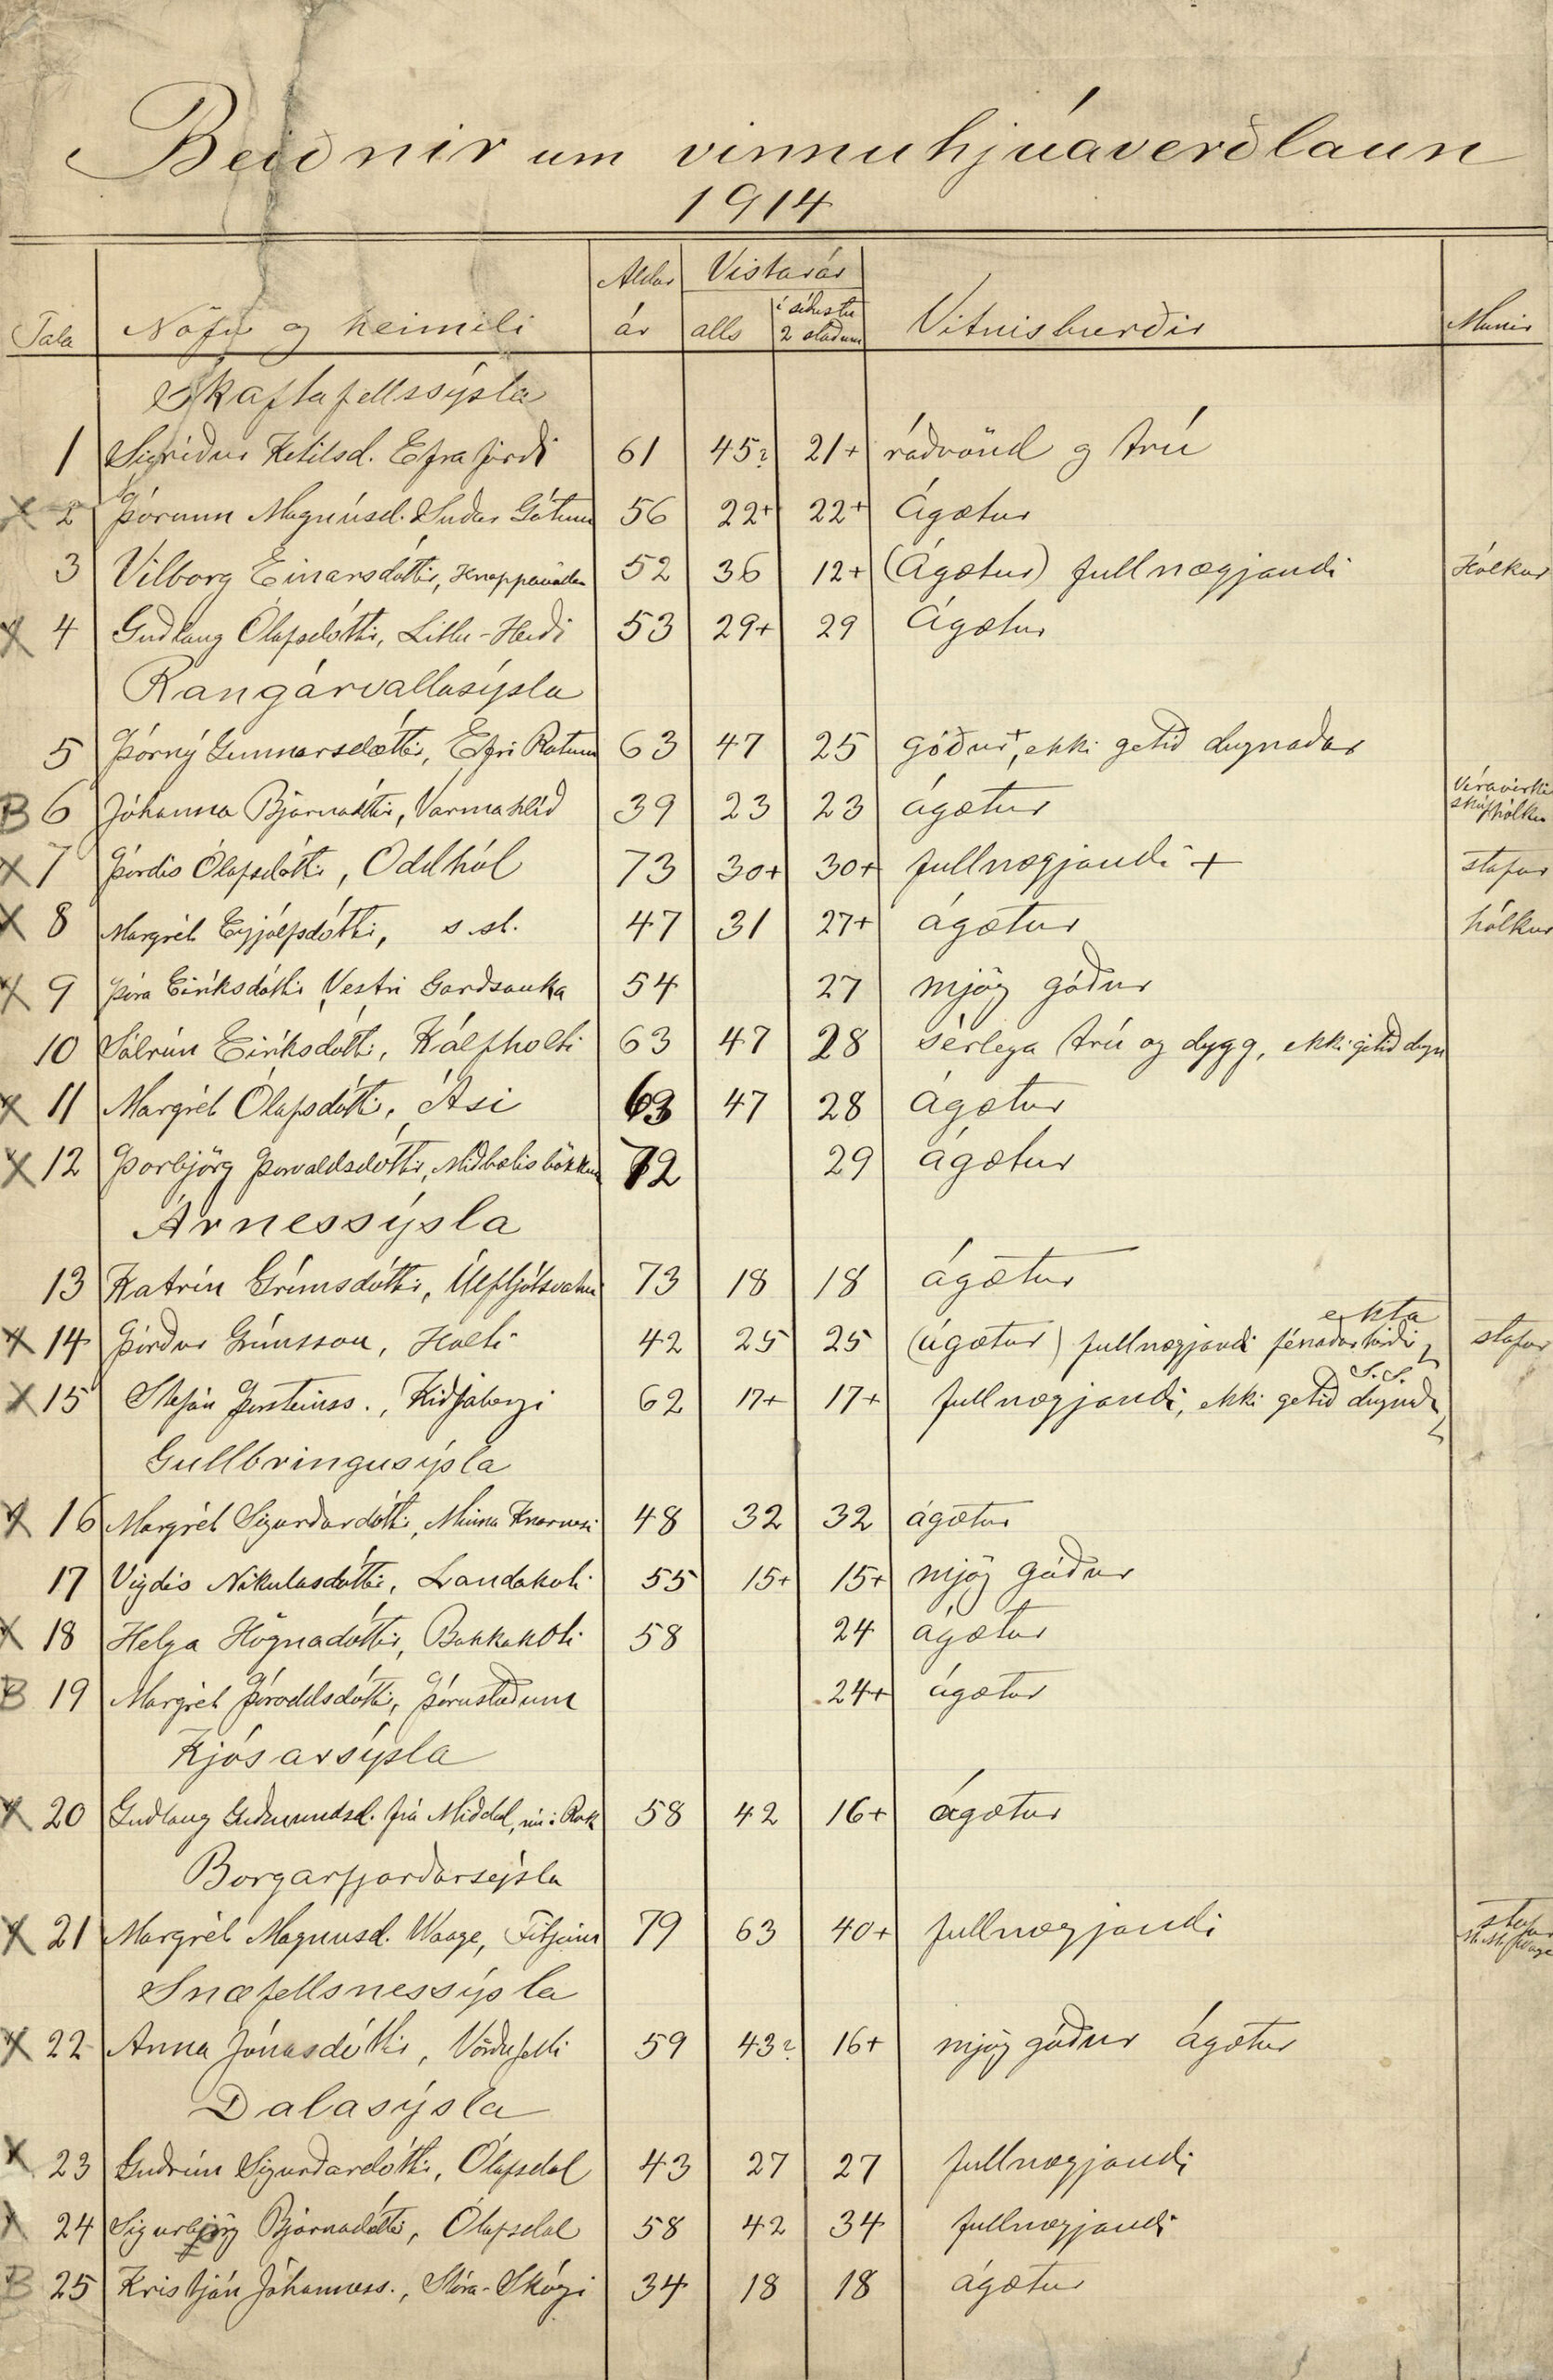 Beiðnir um vinnuhjúaverðlaun
1914
Tala Nöfn og heimili Aldur ár Vistarár alls í síðustu 2 stöðum Vitnisburðir Munir
Skaftafellssýsla
1 Sigríður Ketilsd. Efra firði 61 45? 21+ ráðvönd og trú
X 2 Þórunn Magnúsd. Suður Götum 56 22+ 22+ Ágætur
3 Vilborg Einarsdóttir, 52 36 12+ (Ágætur) fullnægjandi Hólkur
X 4 Guðlaug Ólafsdóttir, Litlu-Heiði 53 29+ 29 Ágætur
Rangárvallasýsla
5 Þórný Gunnarsdóttir, Efri Rotum 63 47 25 góður+, ekki getið dugnaðar
B 6 Jóhanna Bjarnadóttir, Varmahlíð 39 23 23 ágætur
X 7 Þórdís Ólafsdóttir, Oddhól 73 30+ 30+ fullnægjandi + stafur
X 8 Margrét Eyjólfsdóttir, s.st. 47 31 27+ ágætur hólkur
X 9 Þóra Eiríksdóttir Vestri Garðsauka 54 27 mjög góður
10 Sólrún Eiríksdóttir, Kálfholti 63 47 28 sérlega trú og dygg, ekki getið dugn
X 11 Margrét Ólafsdóttir, Ási 63 47 28 Ágætur
X 12 Þorbjörg Þorvaldsdóttir, Miðbælisbökkum 72 29 ágætur
Árnessýsla
13 Katrín Grímsdóttir, Úlfljótsvatni 73 18 18 ágætur
X 14 Þórður Grímsson, Holti 42 25 25 (ágætur) fullnægjandi fénaðarhirði ekta stafur
X 15 Stefán Þorsteinss., Kiðjabergi 62 17+ 17+ fullnægjandi, ekki getið dugnað S.S.
Gullbringusýsla
X 16 Margrét Sigurðardóttir, Minna Knarnesi 48 32 32 ágætur
17 Vigdís Nikulasdóttir, Landakoti 55 15+ 15+ mjög góður
X 18 Helga Högnadóttir, Bakkakoti 58 24 ágætur
B 19 Margrét Þóroddsdóttir, Þórustöðum 24+ ágætur
Kjósarsýsla
X 20 Guðlaug Guðmundsd. frá Miðdal, nú í Rvk 58 42 16+ ágætur
Borgarfjarðarsýsla
X 21 Margrét Magnusd. Waage, Fitjum 79 63 40+ fullnægjandi stafur
Snæfellsnessýsla
X 22 Anna Jónasdóttir, Vörðufelli 59 43? 16+ mjög góður ágætur
Dalasýsla
X 23 Guðrún Sigurðardóttir, Ólafsdal 43 27 27 fullnægjandi
X 24 Sigurbjörg Bjarnadóttir, Ólafsdal 58 42 34 fullnægjandi
B 25 Kristján Jóhanness., Stóra-Skógi 34 18 18 ágætur